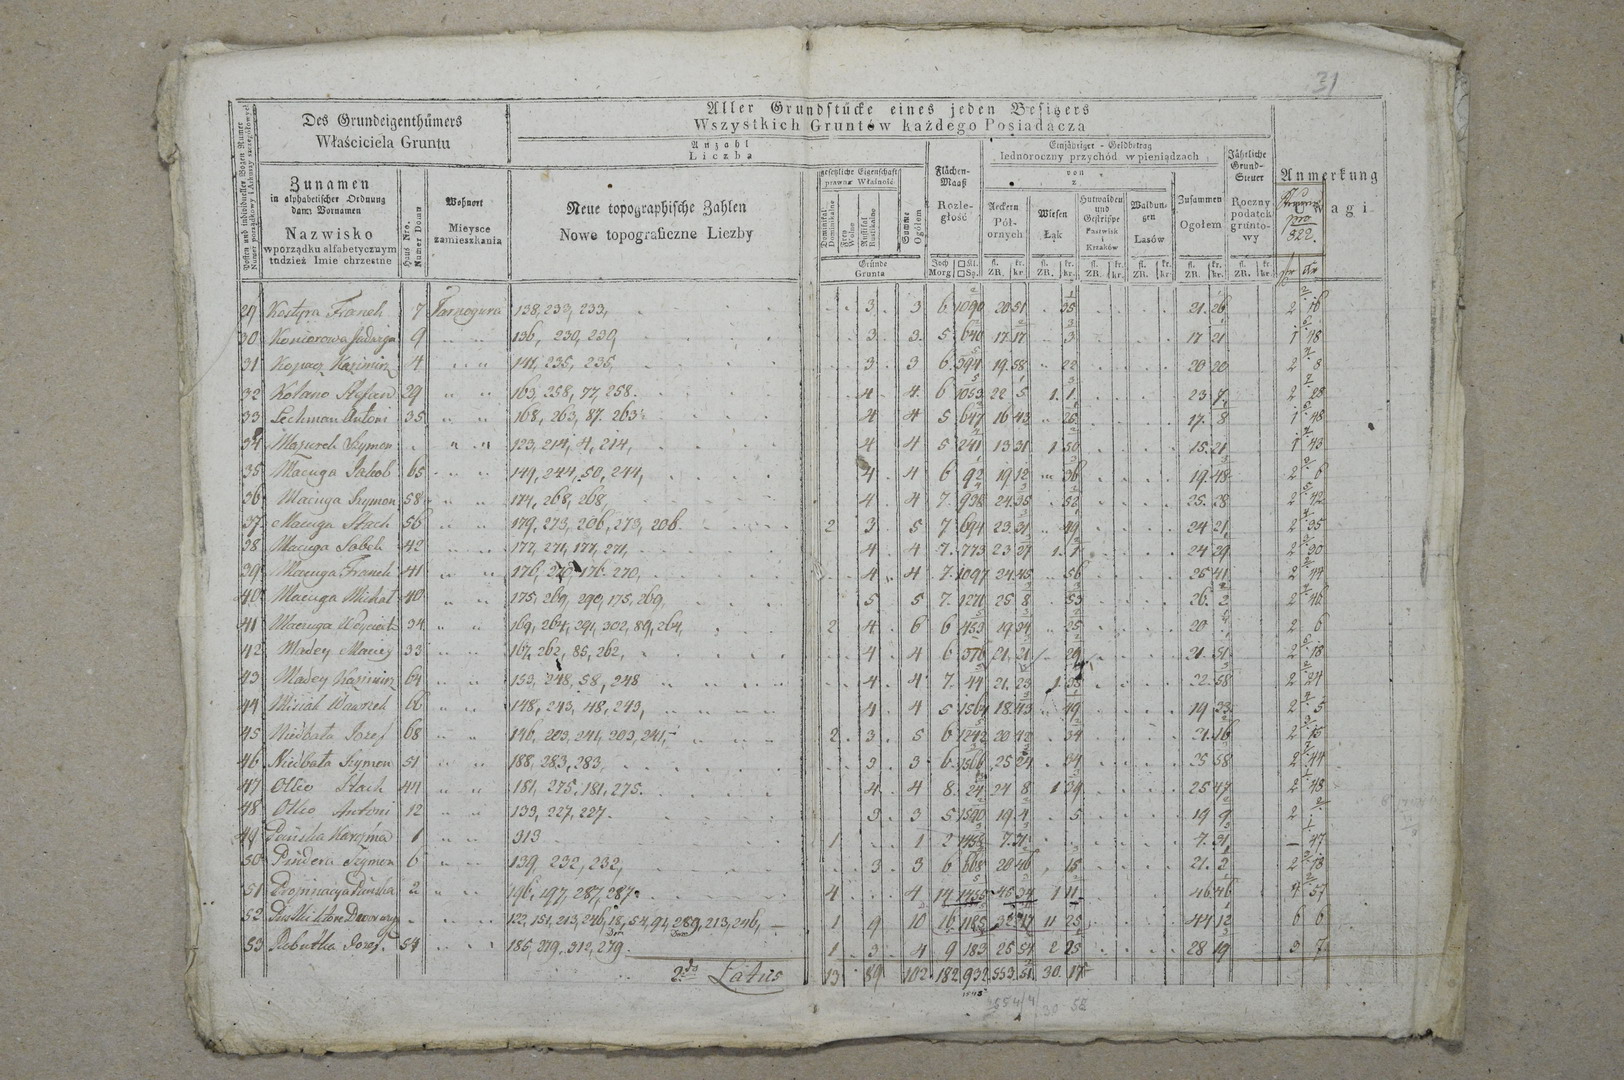 31
Aller Grundstücke eines jeden Besitzers
Wszystkich Gruntów każdego Posiadacza
Des Grundeigenthümers
Właściciela Gruntu
Anzahl
Liczba
Zunamen
in alphabetischer Ordnung
dann Vornamen
Nazwisko
wporządku alfabetycznym
tudzież Imie chrzestne
Haus Nro.
Numer Domu
Wohnort
Mieysce
zamieszkania
Neue topographische Zahlen
Nowe topograficzne Liczby
gesetzliche Eigenschaft
prawna Własność
Dominikal
Dominikalne
Freye
Wolne
Rustikal
Rustikalne
Gründe
Grunta
Summe
Ogółem
Flächen-
Maaß
Rozle-
głość
Joch
Morg
Einjähriger Geldbetrag
Jednoroczny przychód w pieniądzach
von
z
Aeckern
Pól-
ornych
Wiesen
Łąk
Hutweiden
und
Gestrippe
Pastwisk
i
Krzaków
Waldun-
gen
Lasów
Zusammen
Ogołem
Jährliche
Grund-
Steuer
Roczny
podatek
grunto-
wy
fl. kr. fl. kr. fl. kr. fl. kr. fl. kr. fl. kr.
ZR. kr. ZR. kr. ZR. kr. ZR. kr. ZR. kr. ZR. kr.
Anmerkung
Uwagi
pro
822.
29 Kostyra Franek 7 Tarnogura 138, 233, 233, 3 3 6 1090 20 51 35 21 26 2 16
30 9 136, 230, 230, 3 3 5 640 17 17 3 17 21 1 48
31 Kopacz Kazimirz 4 141, 235, 235, 3 3 6 394 19 58 22 20 20 2 8
32 Kolano Stefan 29 163, 258, 77, 258. 4 4 6 1053 22 5 1 1 23 7 2 28
33 Lechman Antoni 35 168, 263, 87, 263 4 4 5 647 16 43 25 17 8 1 48
34 Mazurek Szymon 123, 214, 4, 214, 4 4 5 241 13 31 1 50 15 21 1 43
35 Maciuga Jakob 65 149, 244, 50, 244, 4 4 6 92 19 12 36 19 48 2 6
36 Maciuga Szymon 58 174, 268, 268, 4 4 7 998 24 35 52 25 28 2 42
37 Maciuga Stach 56 179, 273, 206, 273, 206. 2 3 5 7 694 23 31 49 24 21 2 35
38 Maciuga Sobek 42 177, 271, 177, 271, 4 4 7 773 23 27 1 1 24 29 2
39 Maciuga Franek 41 176, 270, 176, 270, 4 4 7 1097 24 45 56 25 41 2 44
40 Maciuga Michał 40 175, 269, 290, 175, 269, 5 5 7 25 8 53 26 2 2 46
41 Maciuga 34 169, 264, 291, 302, 89, 264, 2 4 6 6 453 19 34 25 20 2 6
42 Madey Maciej 33 167, 262, 85, 262, 4 4 6 376 21 21 29 21 51 2 18
43 Madey Kazimirz 64 153, 248, 58, 248 4 4 7 44 21 23 1 22 58 2 24
44 Misiak Wawrzek 66 148, 243, 48, 243, 4 4 5 1564 18 43 49 19 33 2 5
45 Niedbała Jozef 68 146, 203, 241, 203, 241, 2 3 5 6 1242 20 42 34 21 16 2 15
46 Niedbała Szymon 51 188, 283, 283, 3 3 6 1566 25 24 34 25 58 2 44
47 Olko Stach 44 181, 275, 181, 275. 4 4 8 24 24 8 1 39 25 47 2 48
48 Olko Antoni 12 133, 227, 227. 3 3 5 1590 19 4 5 19 9 2
49 Pańska Karczma 1 313 1 1 2 1453 7 31 7 31 47
50 Pindera Szymon 6 139, 232, 232, 3 3 6 668 20 46 15 21 2 2 13
51 Propinacya Pańska 2 196, 197, 287, 287. 4 4 14 1455 45 34 1 11 46 46 4 57
52 122, 151, 213, 246, 18, 54, 94, 289, 213, 246, 1 9 10 16 1185 11 25 44 12 6 6
53 Rebutka Jozef. 54 185, 279, 312, 279. 1 3 4 9 183 25 54 2 25 28 19 3 7
2do Latus 13 89 102 182 932 553 51 30 17
554 4 30 58